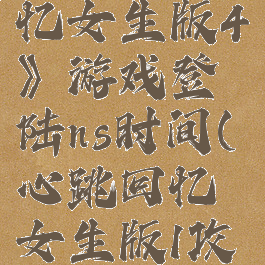 忆女生版4
》游戏登
陆ns时间(
心跳回忆
女生版1攻